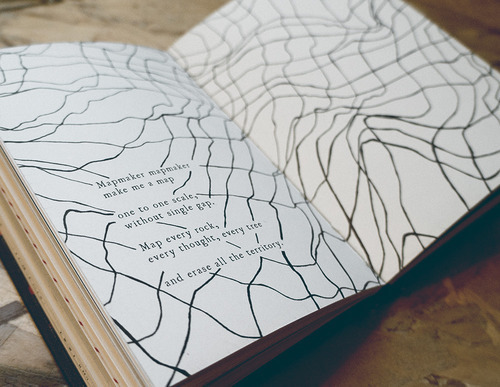 Mapmaker mapmaker
make me a map
one to one scale,
without single gap.
Map every rock,
every thought, every tree
and erase all the territory.